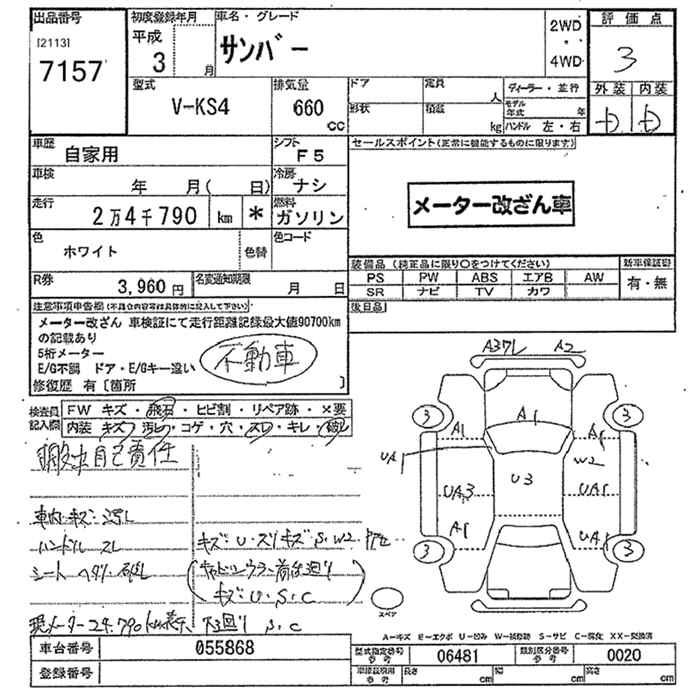 出品番号 初度登録年月 車名・グレード 2WD 評価点
[2113] 平成 サンバー ・ 3
7157 3 月 4WD
型式 排気量 ドア 定員 人 ディーラー・並行 外装 内装
V-KS4 660 cc 形状 積載 kg モデル年式 年 D D
ハンドル 左・右
車歴 自家用 シフト F5 セールスポイント(正常に機能するものに限ります)
車検 年 月( 日) 冷房 ナシ
走行 2万4千790 km * 燃料 ガソリン メーター改ざん車
色 ホワイト 色替 色コード
装備品(純正品に限り○をつけてください) 新車保証書
R券 3,960円 名変通知期限 月 日 PS PW ABS エアB AW 有・無
SR ナビ TV カワ
注意事項申告欄(不具合内容等は具体的に記入して下さい) 後日品
メーター改ざん 車検証にて走行距離記録最大値90700km
の記載あり
5桁メーター 不動車
E/G不調 ドア・E/Gキー違い
修復歴 有〔箇所 〕
検査員記入欄 FW キズ・飛石・ヒビ割・リペア跡・×要
内装 キズ・汚レ・コゲ・穴・スレ・キレ・破レ
自己責任
車内キズ・汚レ
ハンドル スレ キズ・U・スリキズ S・W2
シート ヘタリ・破レ
キズ・U・S・C
現メーター24.790km表示 下回り S・C
A37レ A2
3 A1 A1 A1 3
UA1 W2
UA3 U3 UA1
A1 UA1
3 3
スペア
A-キズ E-エクボ U-凹み W-補修跡 S-サビ C-腐食 XX-交換済
車台番号 055868 型式指定番号 参考 06481 類別区分番号 参考 0020
登録番号 参考 長さ cm 幅 cm 高さ cm